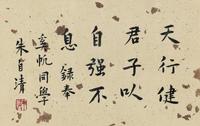 天行健
君子以
自强不
息 錄奉
幸帆同學
朱自清